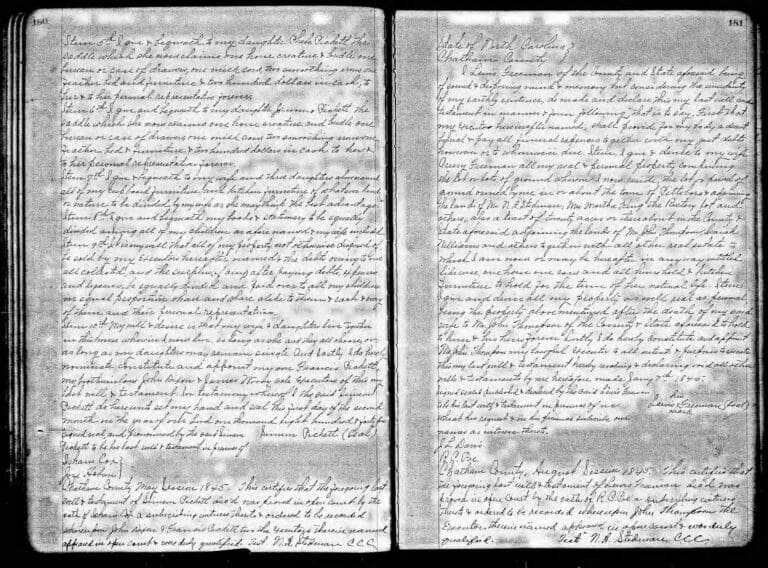 180
Item 5th I give & bequeath to my daughter Phebe Pickett the
saddle which she now claims one horse creature & bridle one
bureau or case of drawers, one milk cow, two smoothing irons one
feather bed and furniture & two hundred dollars in cash, to
her & to her personal representative forever.
Item 6th I give and bequeath to my daughter Jemima Pickett the
saddle which she now claims one horse creature and bridle one
bureau or case of drawers one milk cow two smoothing irons one
feather bed & furniture & two hundred dollars in cash to her &
to her personal representative forever.
Item 7th I give & bequeath to my wife and three daughters above named
all of my cupboard furniture and kitchen furniture of whatever kind
or nature to be divided by my wife as she may think the best advantage
Item 8th I give and bequeath my books & stationery to be equally
divided among all of my children as afore named & my wife included
Item 9th It is my will that all of my property not otherwise disposed of
be sold by my Executors hereafter named & the debts owing to me
all collected, and the surplus, if any after paying debts,
and expenses, be equally divided and paid over to all my children
in equal proportion share and share alike to them & each & every
of them and their personal representatives.
Item 10th My will & desire is that my wife & daughters live together
in this house wherein I now live, as long as she and they all choose, or
as long as my daughters may remain single And Lastly I do hereby
nominate constitute and appoint my son Francis Pickett,
my John Dixon & James Woody sole Executors of this my
last will & testament. In testimony whereof I the said Simeon
Pickett do hereunto set my hand and seal this first day of the second
month in the year of our Lord one thousand eight hundred &
signed seal and pronounced by the said Simeon Simeon Pickett (Seal)
Pickett to be his last will & testament in presence of
Isham Cox
Chatham County May Session 1845. This certifies that the foregoing last
will & testament of Simeon Pickett decd was proved in open court by the
oath of Isham Cox a subscribing witness thereto & ordered to be recorded
whereupon John Dixon & Francis Pickett two of the Executors therein named
appeared in open court & was duly qualified. Test N. A. Stedman C.C.C
181
State of North Carolina }
Chatham County
I Lewis Freeman of the County and State aforesaid being
of sound & disposing mind & memory but considering the uncertainty
of my earthly existence, do make and declare this my last will and
testament in manner & form following, that is to say, First that
my executor hereinafter named, shall provide for my body a decent
burial & pay all funeral expenses together with my just debts
to whomsoever due. Item, I give & devise to my wife
Creecy Freeman all my real & personal property consisting
the lot or lots of ground whereon I now reside, the lot or parcel of
ground in or about the town of Pittsboro & adjoining
the lands of Mr N. A. Stedman, Mrs Martha King the Rectory lot and
others, also a tract of twenty acres or thereabout in the County &
State aforesaid adjoining the lands of Mr John Thompson, Isaiah
Williams and others together with all other real estate to
which I am now or may be hereafter in anyway entitled
likewise one horse one cow and all household & kitchen
furniture to hold for the term of her natural life. Item I
give and devise all my property as well real as personal,
being the property above mentioned after the death of my said
wife to Mr John Thompson of the County & State aforesaid to hold
to him & his heirs forever. Lastly, I do hereby constitute and appoint
Mr John Thompson my lawful Executor to all intents & purposes to execute
this my last will & testament hereby revoking & declaring void all other
wills & testaments by me heretofore made. Jany 7th 1845.
signed sealed published & declared by the said Lewis Freeman his
to be his last will & testament in presence of us Lewis Freeman (Seal)
who at his request & in his presence subscribe our mark
names as witness thereto.
J. L. Davis
R. C. Poe
Chatham County, August Session 1845. This certifies that
the foregoing last will & testament of Lewis Freeman decd was
proved in open court by the oath of R. C. Poe a subscribing witness
thereto & ordered to be recorded whereupon John Thompson the
Executor therein named appeared in open court & was duly
qualified. Test N. A. Stedman C.C.C